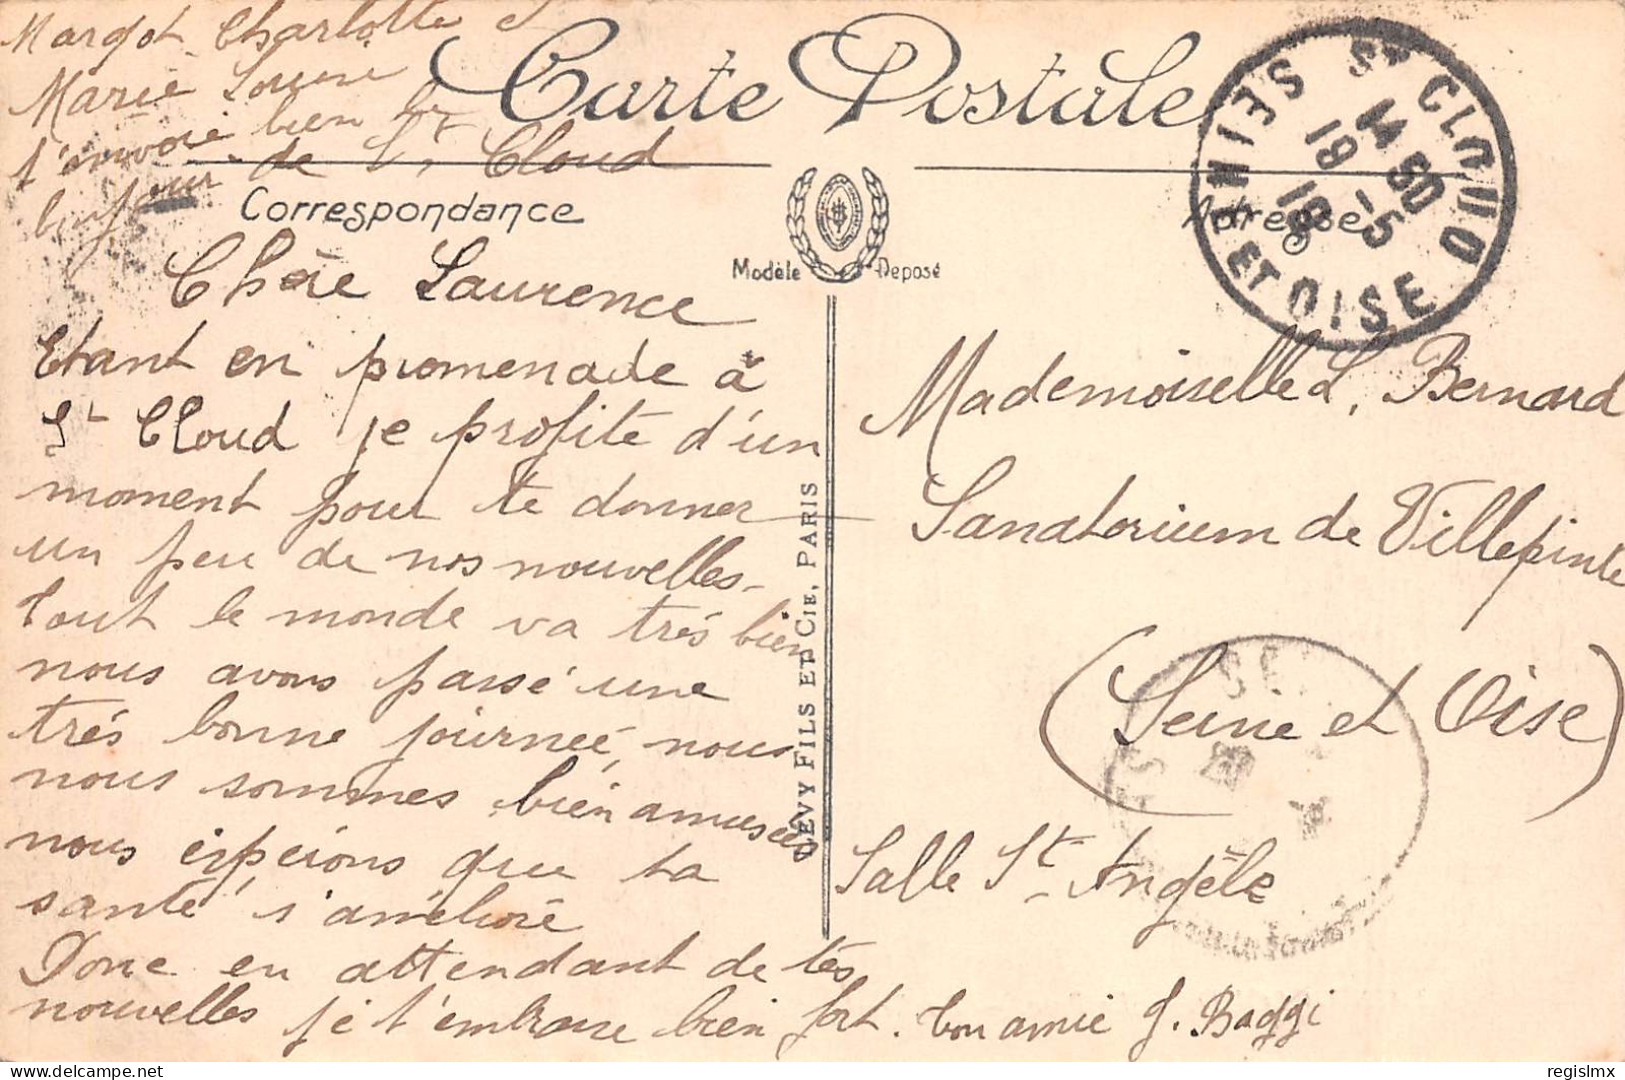 Margot Charlotte et
Marie Louise
t'envoie bien le
bonjour de St Cloud
Carte Postale
Correspondance
Adresse
Modèle Deposé
ST CLOUD
SEINE ET OISE
14 50
18 -5
18
Chère Laurence
Etant en promenade à
St Cloud je profite d'un
moment pour te donner
un peu de nos nouvelles-
tout le monde va très bien
nous avons passé une
très bonne journeé, nous
nous sommes bien amusées
nous espérons que ta
santé s'améliore
Donc en attendant de tes
nouvelles je t'embrasse bien fort. ton amie J. Baggi
LEVY FILS ET CIE, PARIS
Mademoiselle L. Bernard
Sanatorium de Villepinte
(Seine et Oise)
Salle St Angèle
delcampe.net
regislmx